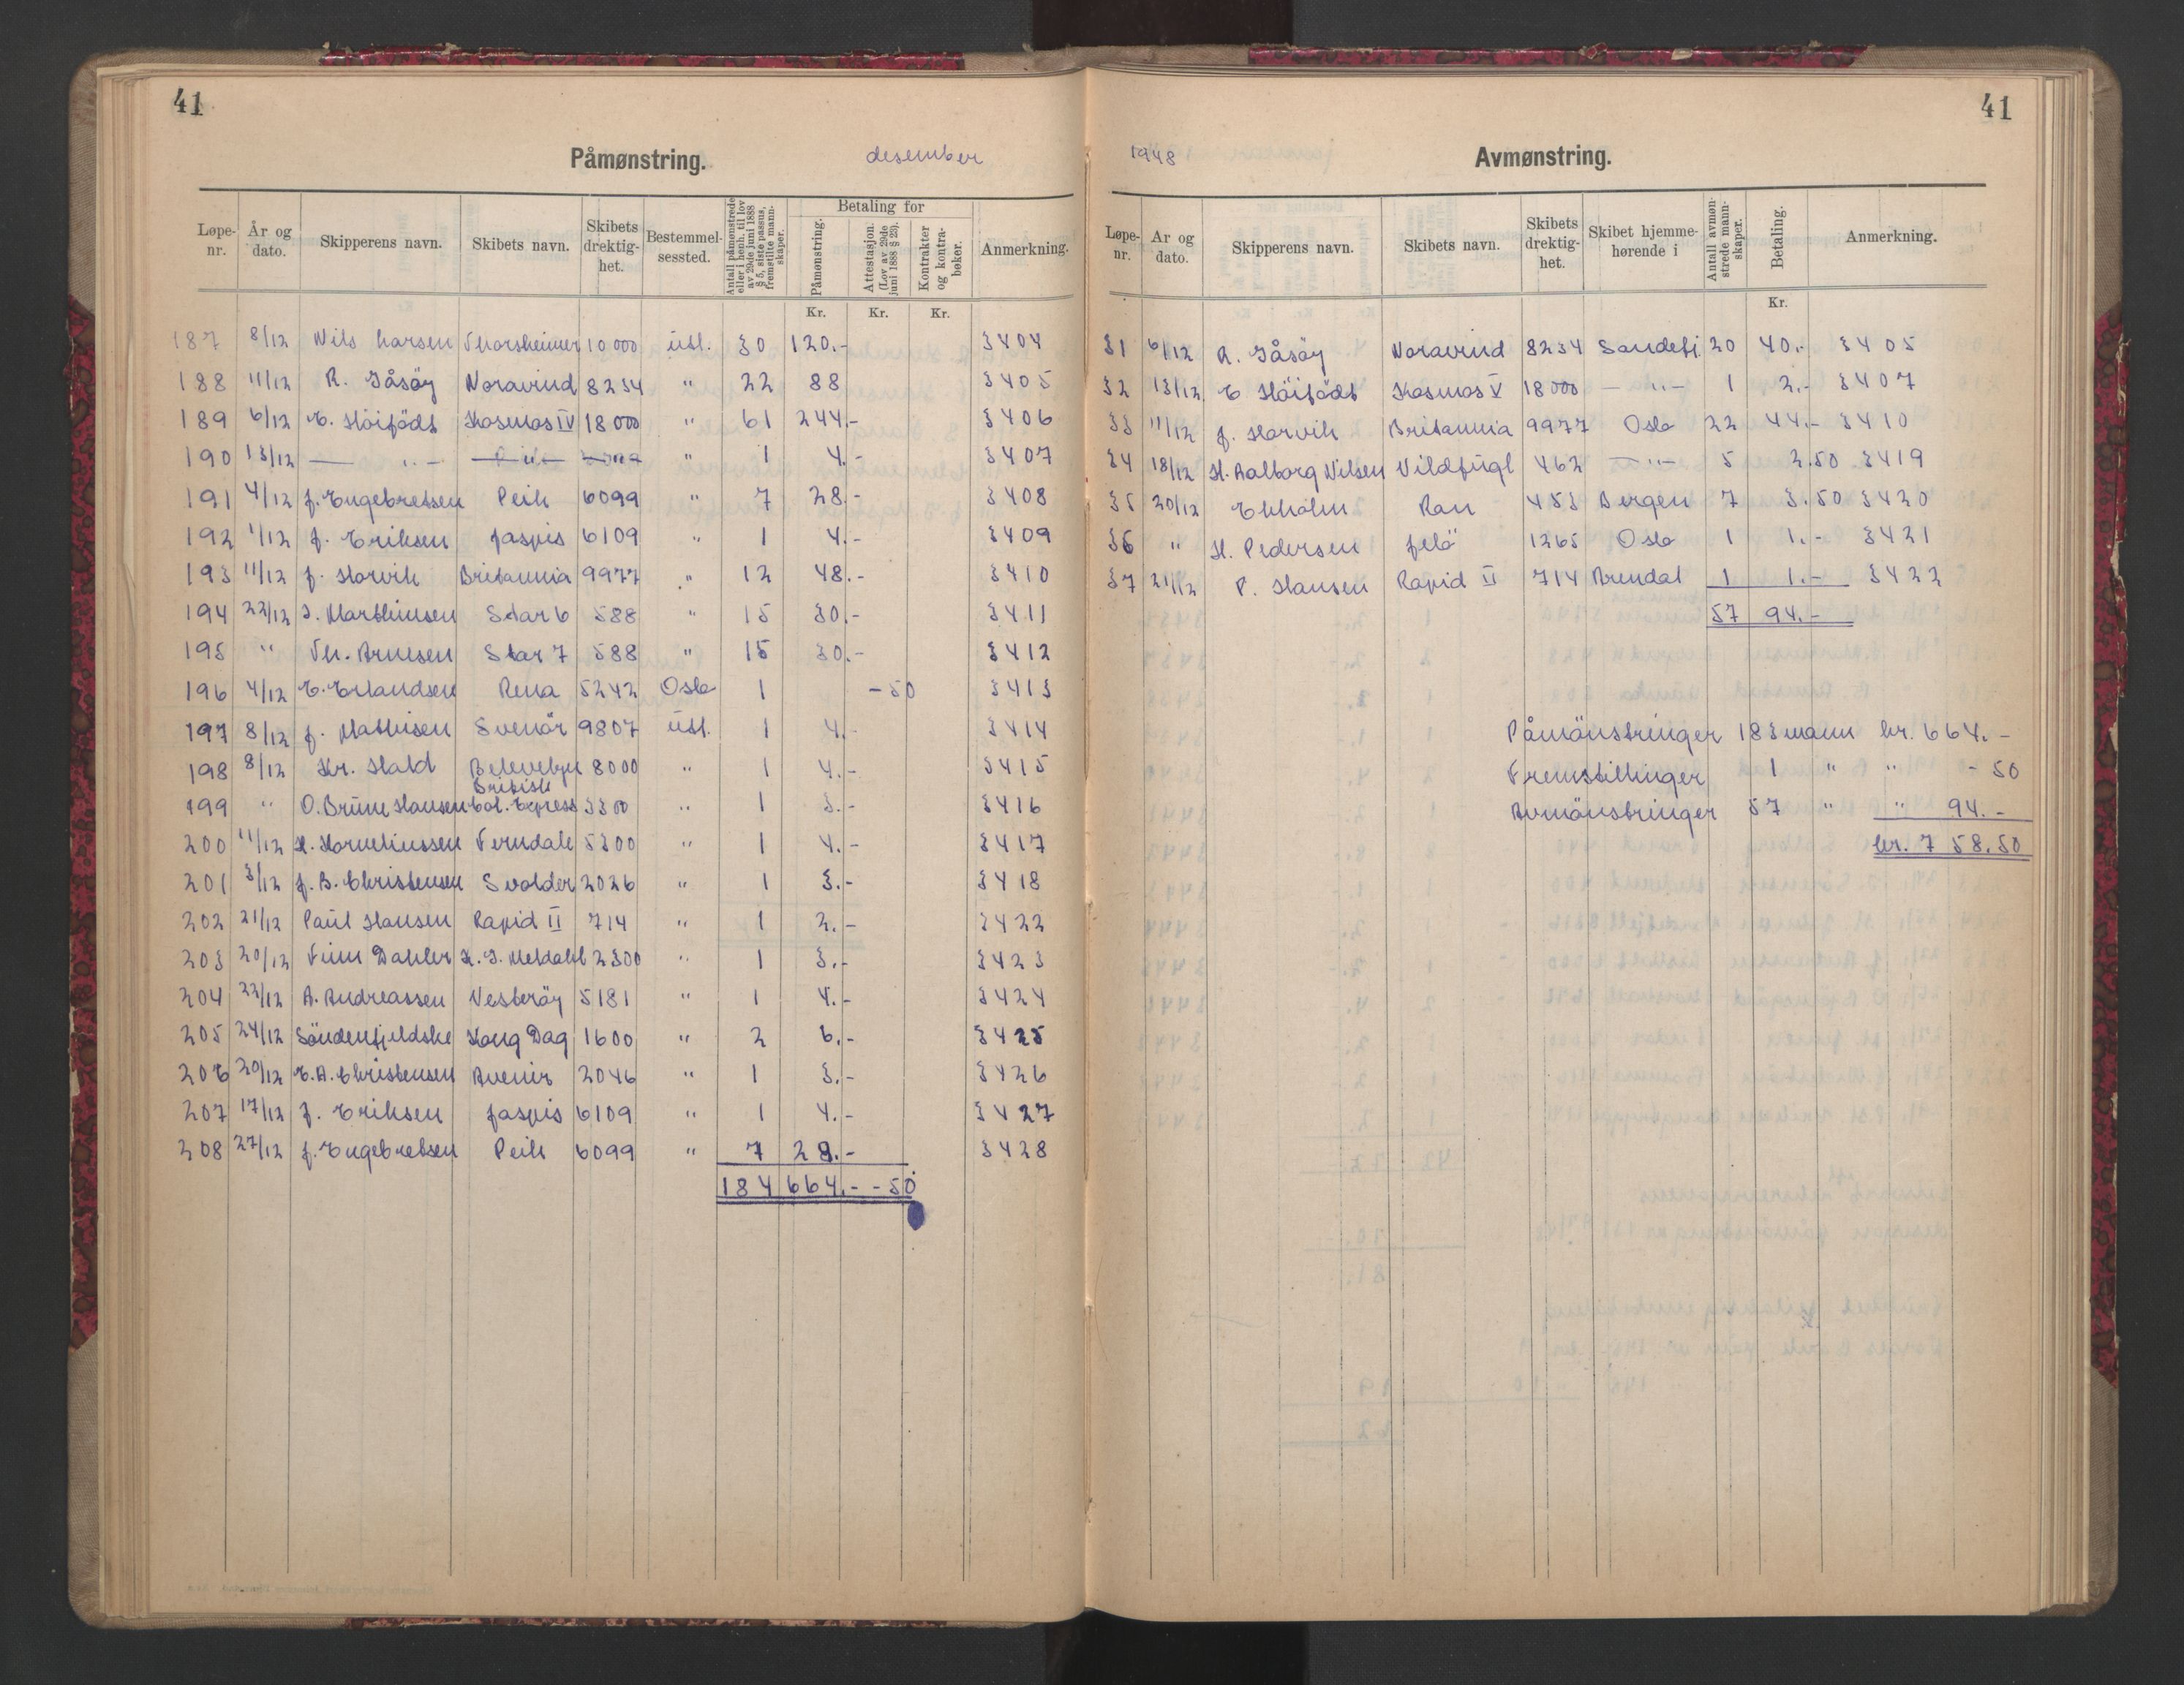 41
Påmønstring. desember
Løpe-nr. År og dato. Skipperens navn. Skibets navn. Skibets drektig-het. Bestemmel-sessted. Antall påmønstrede eller i henh. til lov av 29de juni 1888 § 5, siste passus, fremstilte mann-skaper. Betaling for Påmønstring. Attestasjon. (Lov av 29de juni 1888 § 23). Kontrakter og kontra-bøker. Anmerkning.
Kr. Kr. Kr.
187 8/12 Nils Larsen Thorsheimer 10000 utl. 30 120.- 3404
188 11/12 R. Gåsöy Noravind 8234 " 22 88 3405
189 6/12 E. Höifödt Kosmos IV 18000 " 61 244.- 3406
190 13/12 — " — — " — " 1 4.- 3407
191 4/12 J. Engebretsen Peik 6099 " 7 28.- 3408
192 1/12 J. Eriksen Jaspis 6109 " 1 4.- 3409
193 11/12 J. Horvik Britannia 9977 " 12 48.- 3410
194 22/12 S. Marthinsen Star 6 588 " 15 30.- 3411
195 " Th. Arnesen Star 7 588 " 15 30.- 3412
196 4/12 E. Erlandsen Rena 5242 Oslo 1 -50 3413
197 8/12 J. Mathisen Svenör 9807 utl. 1 4.- 3414
198 8/12 Kr. Hald Belevelyn 8000 " 1 4.- 3415
199 " O. Brune Hansen British Col. Express 3300 " 1 3.- 3416
200 11/12 H. Korneliussen Ferndale 5300 " 1 4.- 3417
201 3/12 J. B. Christensen Svolder 2026 " 1 3.- 3418
202 21/12 Paul Hansen Rapid II 714 " 1 2.- 3422
203 20/12 Finn Dahler K. S. Meldahl 2300 " 1 3.- 3423
204 22/12 A. Andreassen Vesteröy 5181 " 1 4.- 3424
205 24/12 Söndenfjeldske Kong Dag 1600 " 2 6.- 3425
206 20/12 E. A. Christensen Avenir 2046 " 1 3.- 3426
207 17/12 J. Eriksen Jaspis 6109 " 1 4.- 3427
208 27/12 J. Engebretsen Peik 6099 " 7 28.- 3428
184 664.- -50
41
1948 Avmønstring.
Løpe-nr. Ar og dato. Skipperens navn. Skibets navn. Skibets drektig-het. Skibet hjemme-hørende i Antall avmøn-strede mann-skaper. Betaling. Anmerkning.
Kr.
31 6/12 R. Gåsöy Noravind 8234 Sandefj. 20 40.- 3405
32 13/12 E Höifödt Kosmos V 18000 — " — 1 2.- 3407
33 11/12 J. Horvik Britannia 9977 Oslo 22 44.- 3410
34 18/12 H. Aalborg Nilsen Vildfugl 462 — " — 5 2.50 3419
35 20/12 Ekholm Ran 453 Bergen 7 3.50 3420
36 " H. Pedersen Jelö 1265 Oslo 1 1.- 3421
37 21/12 P. Hansen Rapid II 714 Arendal 1 1.- 3422
57 94.-
Påmönstringer 183 mann kr. 664.-
Fremstillinger 1 " " -50
Avmönstringer 57 " " 94.-
kr. 758.50